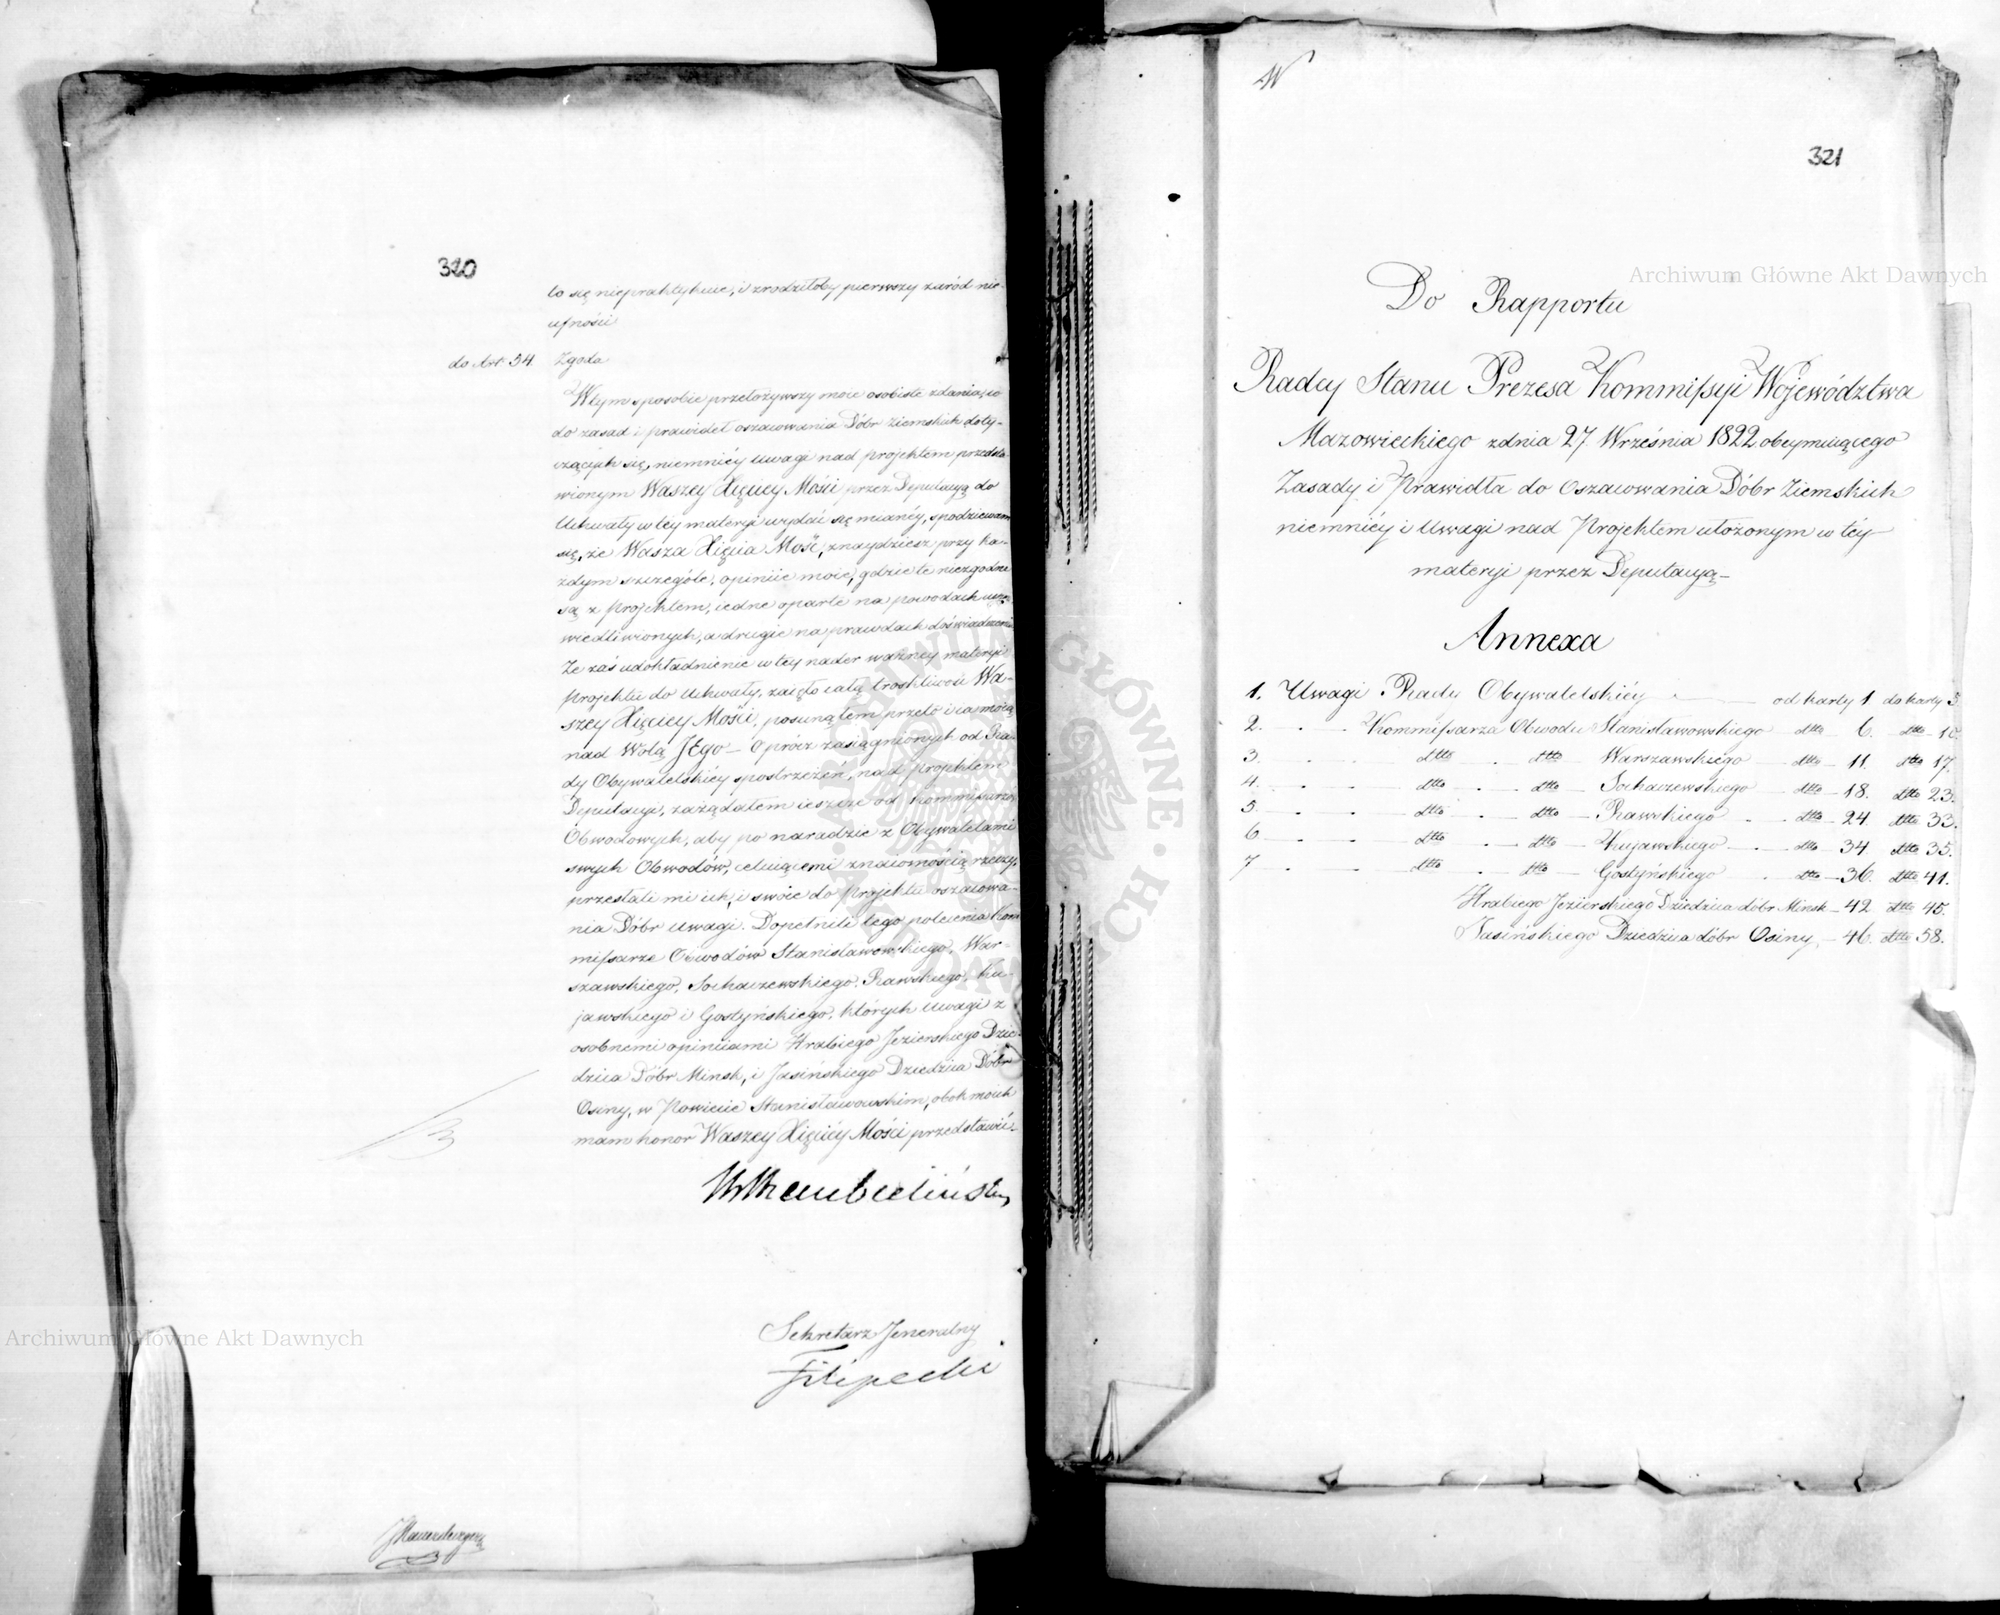 320
to się niepraktykuie, i zrodziłoby pierwszy zaród nie-
ufności
do Art. 54. Zgoda
W tym sposobie przełożywszy moie osobiste zdania, co
do zasad i prawideł oszacowania Dóbr Ziemskich doty-
czących się, niemniéy uwagi nad projektem przedsta
wionym Waszey Xięcey Mości przez Deputacyą do
Uchwały w téy materyi wydać się mianéy, spodziewam
się, że Wasza Xięcia Mość, znaydziesz przy ka-
żdym szczególe, opiniie moie, gdzie te niezgodne
są z projektem, iedne oparte na powodach uspra
wiedliwionych, a drugie na prawdach doświadczenia
Że zaś udokładnienie w téy nader ważney materyi
projektu do Uchwały, zaięło całą troskliwość Wa-
szey Xięcey Mości, posunąłem przeto i ia moią
nad Wolą JEgo — Oprócz zasiągnionych od Ra-
dy Obywatelskiéy spostrzeżeń, nad projektem
Deputacyi, zażądałem ieszcze od Kommissarzy
Obwodowych, aby po naradzie z Obywatelami
swych Obwodów, celuiącemi znaiomością rzeczy,
przesłali mi ich, i swoie do projektu oszacowa-
nia Dóbr uwagi. Dopełnili tego polecenia Kom
missarze Obwodów Stanisławowskiego, War-
szawskiego, Sochaczewskiego, Rawskiego, Ku-
jawskiego i Gostyńskiego, których uwagi z
osobnemi opiniiami Hrabiego Jezierskiego Dzie-
dzica Dóbr Minsk, i Jasińskiego Dziedzica Dóbr
Osiny, w Powiecie Stanisławowskim, obok moich
mam honor Waszey Xięcéy Mości przedstawić.
Sekretarz Jeneralny
Filipecki
321
Do Rapportu
Radcy Stanu Prezesa Kommissyi Województwa
Mazowieckiego z dnia 27. Września 1822 obeymuiącego
Zasady i Prawidła do Oszacowania Dóbr Ziemskich
niemniéy i Uwagi nad Projektem ułożonym w téy
materyi przez Deputacyą —
Annexa
1. Uwagi Rady Obywatelskiéy — od karty 1 do karty 5
2. - - Kommissarza Obwodu Stanisławowskiego dtto 6. dtto 10.
3. - - dtto - dtto — Warszawskiego — dtto — 11. dtto 17.
4. - - dtto - dtto — Sochaczewskiego dtto — 18. dtto 23.
5 - - dtto - dtto — Rawskiego - dtto — 24 dtto 33.
6 - - dtto - dtto — Kujawskiego - dtto — 34 dtto 35.
7 - - dtto - dtto — Gostyńskiego - dtto — 36. dtto 41.
Hrabiego Jezierskiego Dziedzica dóbr Minsk — 42 dtto 45.
Jasińskiego Dziedzica dóbr Osiny, — 46. dtto 58.
Archiwum Główne Akt Dawnych
Archiwum Główne Akt Dawnych